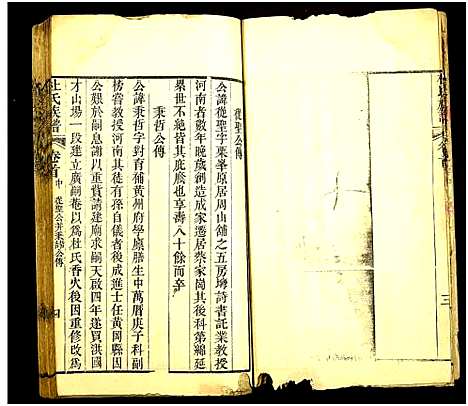 從聖公傳
公諱從聖字栗峯原居周山舖之五房塆詩書託業教授
河南者數年晚歲創造成家遷居蔡家崗其後科第綿延
累世不絶皆其庇廕也享壽八十餘而卒
秉哲公傳
公諱秉哲字對育補黃州府學廪膳生中萬曆庚子科副
榜嘗教授河南其徒孫自儀者後成進士任黃岡縣因
公艱於嗣息謝以重貲請建廟求嗣天啟四年遂買洪國
才山場一段建立廣嗣菴以爲杜氏香火後因重修改爲
杜氏族譜
卷首中
從聖公幷秉哲公傳
四
三